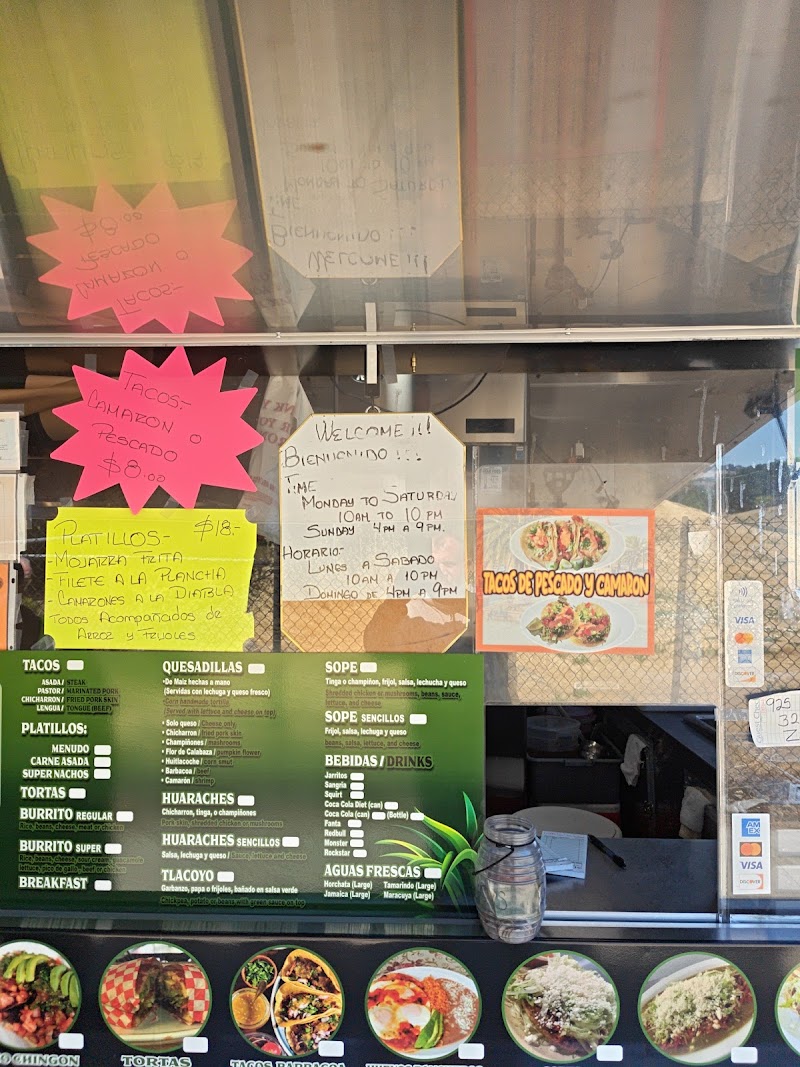 TACOS-
CAMARON O
PESCADO
$8.00
WELCOME !!!
BIENVENIDO !!!
TIME
MONDAY TO SATURDAY
10AM TO 10 PM
SUNDAY 4PM A 9PM.
HORARIO-
LUNES A SABADO
10AM A 10PM
DOMINGO DE 4PM A 9PM
PLATILLOS- $18.-
-MOJARRA FRITA
-FILETE A LA PLANCHA
-CAMARONES A LA DIABLA
TODOS ACOMPAÑADOS DE
ARROZ Y FRIJOLES
TACOS DE PESCADO Y CAMARON
VISA
DISCOVER
925
32
TACOS
ASADA / STEAK
PASTOR / MARINATED PORK
CHICHARRON / FRIED PORK SKIN
LENGUA / TONGUE (BEEF)
PLATILLOS:
MENUDO
CARNE ASADA
SUPER NACHOS
TORTAS
BURRITO REGULAR
Rice, beans, cheese, meat or chicken
BURRITO SUPER
Rice, beans, cheese, sour cream, guacamole
lettuce, pico de gallo, beef or chicken
BREAKFAST
QUESADILLAS
•De Maiz hechas a mano
(Servidas con lechuga y queso fresco)
Corn handmade tortilla
(Served with lettuce and cheese on top)
• Solo queso / Cheese only
• Chicharron / fried pork skin
• Champiñones / mushrooms
• Flor de Calabaza / pumpkin flower
• Huitlacoche / corn smut
• Barbacoa / beef
• Camarón / shrimp
HUARACHES
Chicharron, tinga, o champiñones
Pork skin, shredded chicken or mushrooms
HUARACHES SENCILLOS
Salsa, lechuga y queso / Sauce, lettuce and cheese
TLACOYO
Garbanzo, papa o frijoles, bañado en salsa verde
Chickpea, potato or beans with green sauce on top
SOPE
Tinga o champiñon, frijol, salsa, lechucha y queso
Shredded chicken or mushrooms, beans, sauce,
lettuce, and cheese
SOPE SENCILLOS
Frijol, salsa, lechuga y queso
beans, salsa, lettuce, and cheese
BEBIDAS / DRINKS
Jarritos
Sangria
Squirt
Coca Cola Diet (can)
Coca Cola (can) (Bottle)
Fanta
Redbull
Monster
Rockstar
AGUAS FRESCAS
Horchata (Large) Tamarindo (Large)
Jamaica (Large) Maracuya (Large)
AM
EX
VISA
DISCOVER
O CHINGON
TORTAS
TACOS BARBACOA